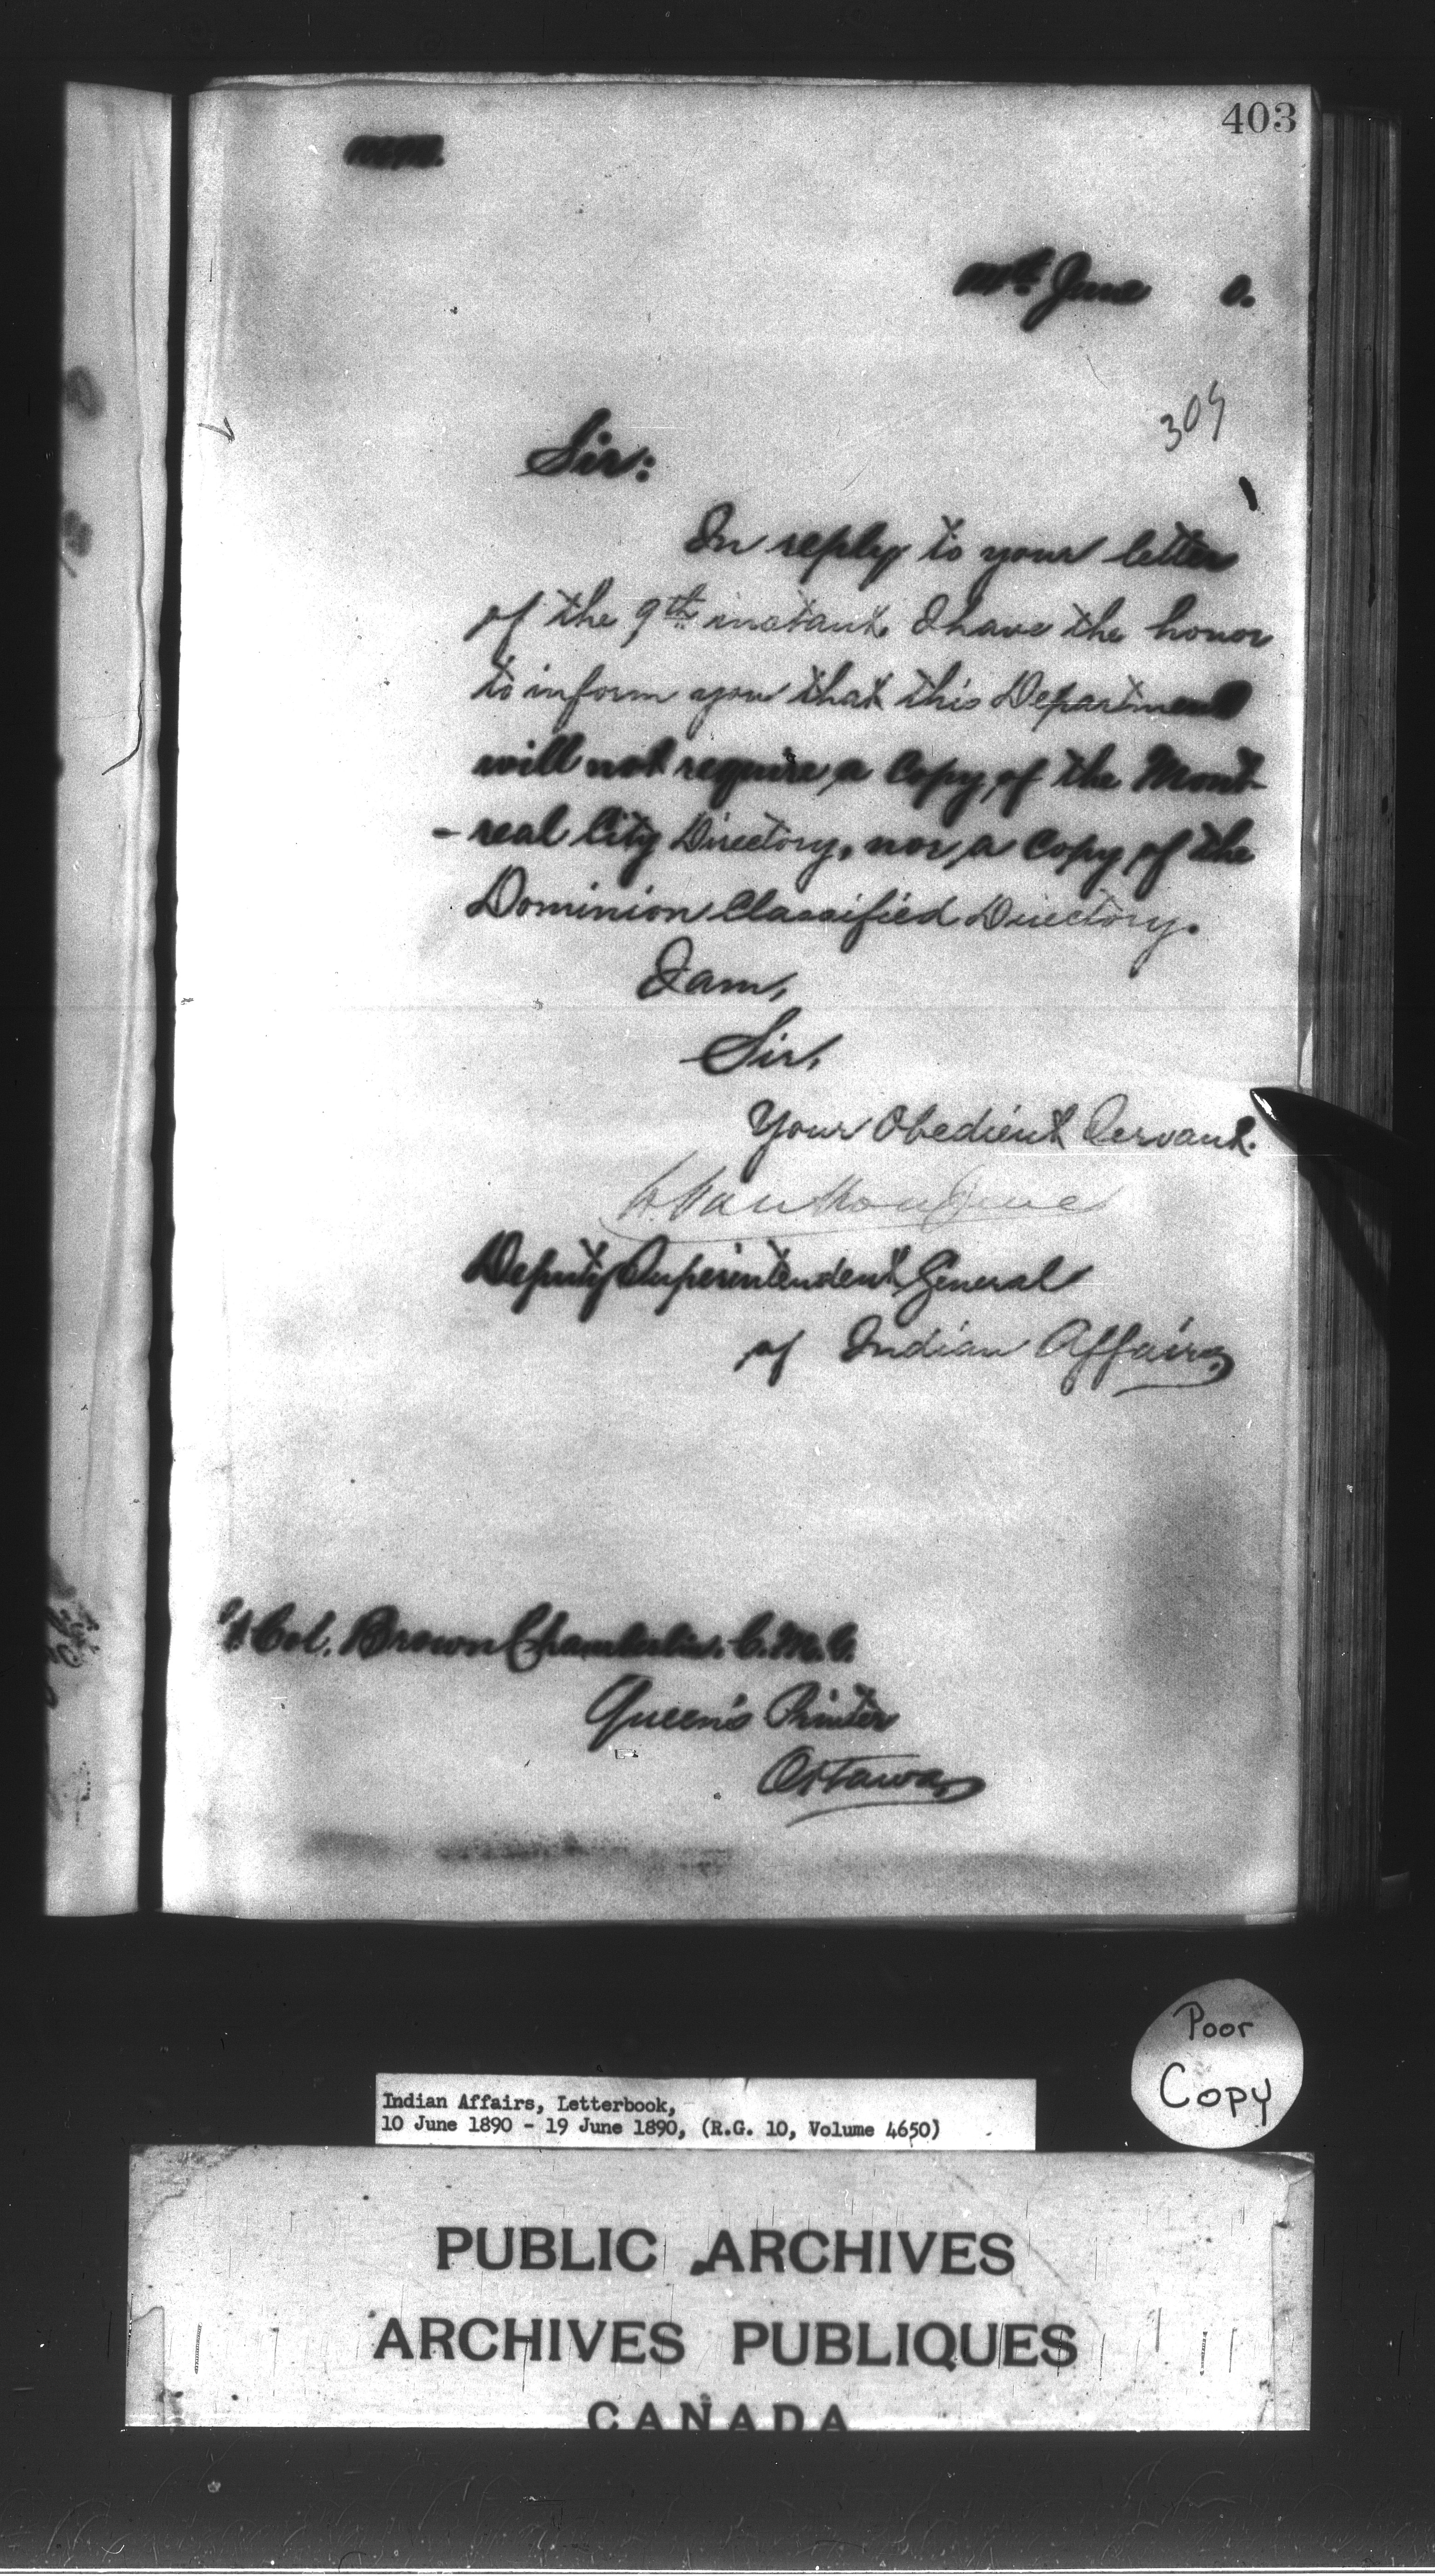 403
June 0.
309
Sir:
In reply to your letter
of the 9th instant, I have the honor
to inform you that this Department
will not require a Copy of the Mont-
-real City Directory, nor a Copy of the
Dominion Classified Directory.
I am,
Sir,
Your Obedient Servant.
L. VanKoughnet
Deputy Superintendent General
of Indian Affairs
Lt Col. Brown Chamberlin. C.M.G.
Queen's Printer
Ottawa
Poor
Copy
Indian Affairs, Letterbook,
10 June 1890 - 19 June 1890, (R.G. 10, Volume 4650)
PUBLIC ARCHIVES
ARCHIVES PUBLIQUES
CANADA